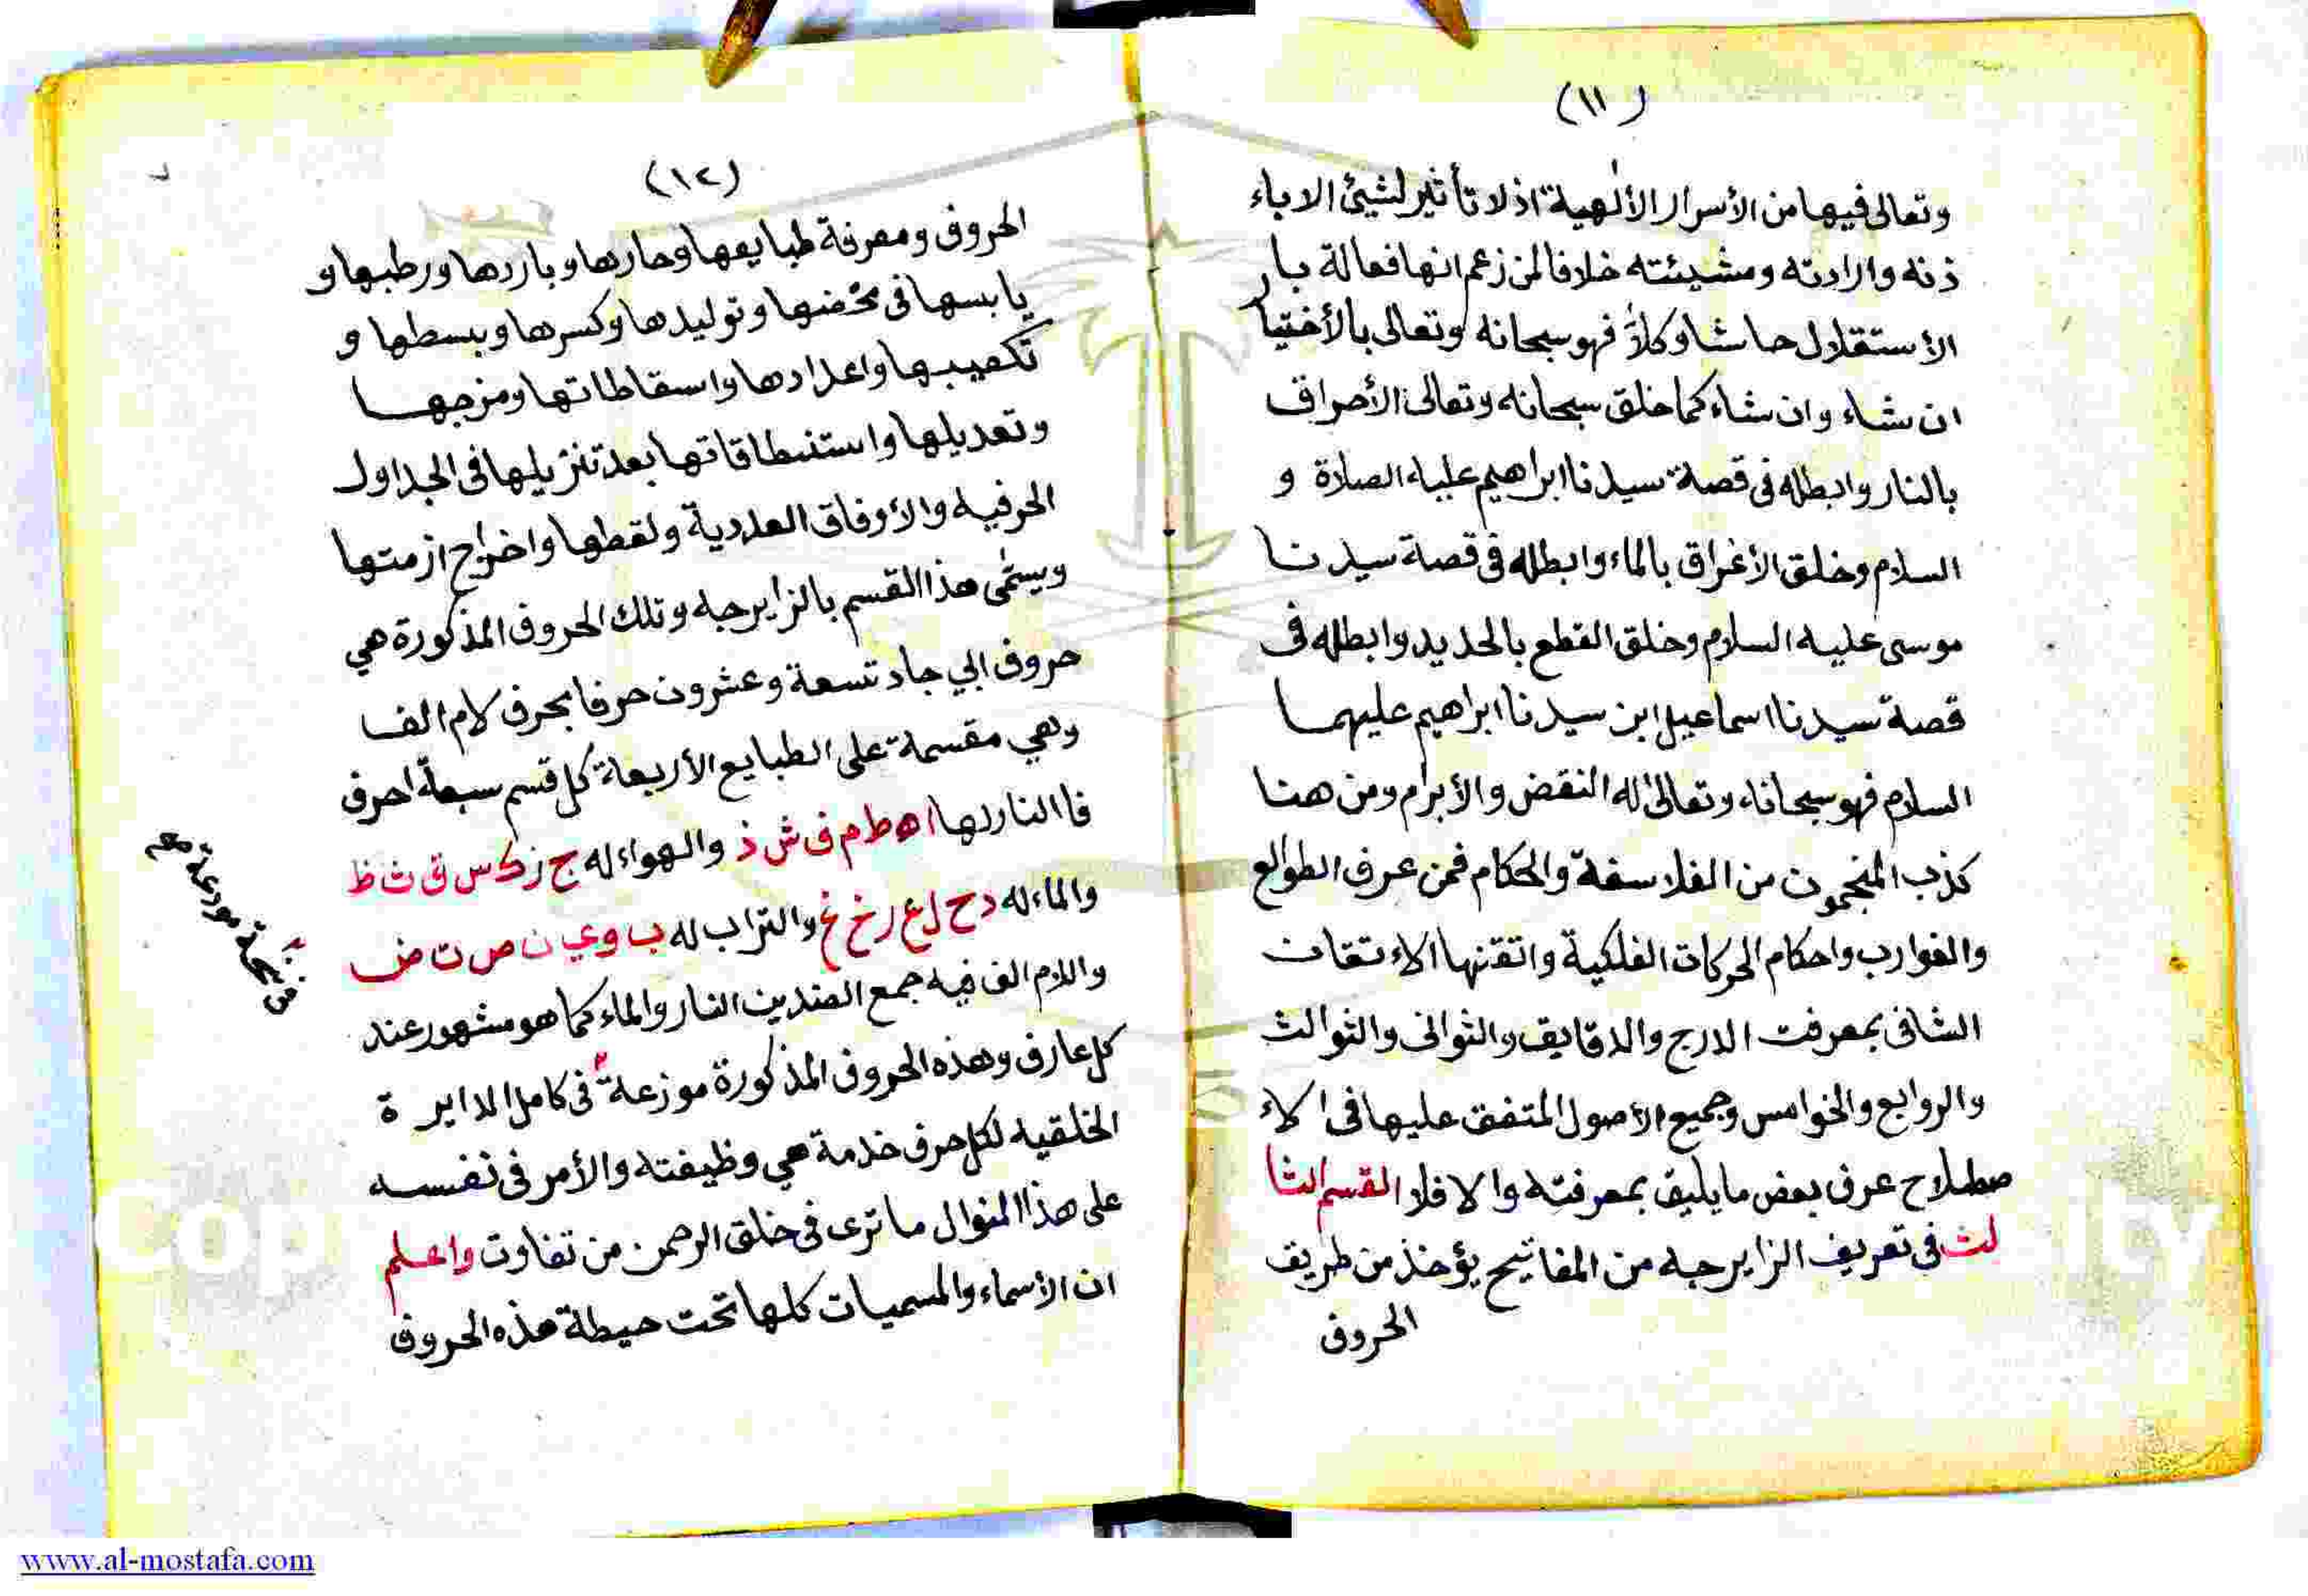 (١١)
وتعالى فيها من الأسرار الألهية اذ لا تأثير لشيئ الا باء
ذنه وارادته ومشيئته خلافا لمن زعم انها فعالة بار
الأستقلال حاشا وكلاّ فهو سبحانه وتعالى بالأختيا
ان شاء وان شاء كما خلق سبحانه وتعالى الأحراق
بالنار وابطله فى قصة سيدنا ابراهيم عليه الصلاة و
السلام وخلق الأغراق بالماء وابطله فى قصة سيدنا
موسى عليه السلام وخلق القطع بالحديد وابطله فى
قصة سيدنا اسماعيل ابن سيدنا ابراهيم عليهما
السلام فهو سبحانه وتعالى له النقض والأبرام ومن هنا
كذب المنجمون من الفلاسفة والحكام فمن عرف الطوالع
والغوارب واحكام الحركات الفلكية واتقنها الاء تقان
الشافى بمعرفت الدرج والدقايق والثوانى والثوالث
والروابع والخوامس وجميع الأصول المتفق عليها فى الاء
صطلاح عرف بعض ما يليق بمعرفته والا فلا القسم الثا
لث فى تعريف الزايرجه من المفاتيح يؤخذ من طريق
الحروف
(١٢)
الحروف ومعرفة طبايعها وحارها وباردها ورطبها و
يابسها فى محضها وتوليدها وكسرها وبسطها و
تكعيبها واعدادها واسقاطاتها ومزجها
وتعديلها واستنطاقاتها بعد تنزيلها فى الجداول
الحرفيه والأوفاق العددية ولقطها واخراج ازمتها
ويسمى هذا القسم بالزايرجه وتلك الحروف المذكورة هي
حروف ابي جاد تسعة وعشرون حرفا بحرف لام الف
وهي مقسمة على الطبايع الأربعة كل قسم سبعة احرف
فا النار لها ا ه ط م ف ش ذ والهواء له ج ز ك س ق ث ظ
والماء له د ح ل ع ر خ غ والتراب له ب و ي ن ص ت ض
واللام الف فيه جمع الضدين النار والماء كما هو مشهور عند
كل عارف وهذه الحروف المذكورة موزعة فى كامل الدايرة
الخلقيه لكل حرف خدمة هي وظيفته والأمر فى نفسه
على هذا المنوال ما ترى فى خلق الرحمن من تفاوت واعلم
ان الأسماء والمسميات كلها تحت حيطة هذه الحروف
مودعة صح
www.al-mostafa.com